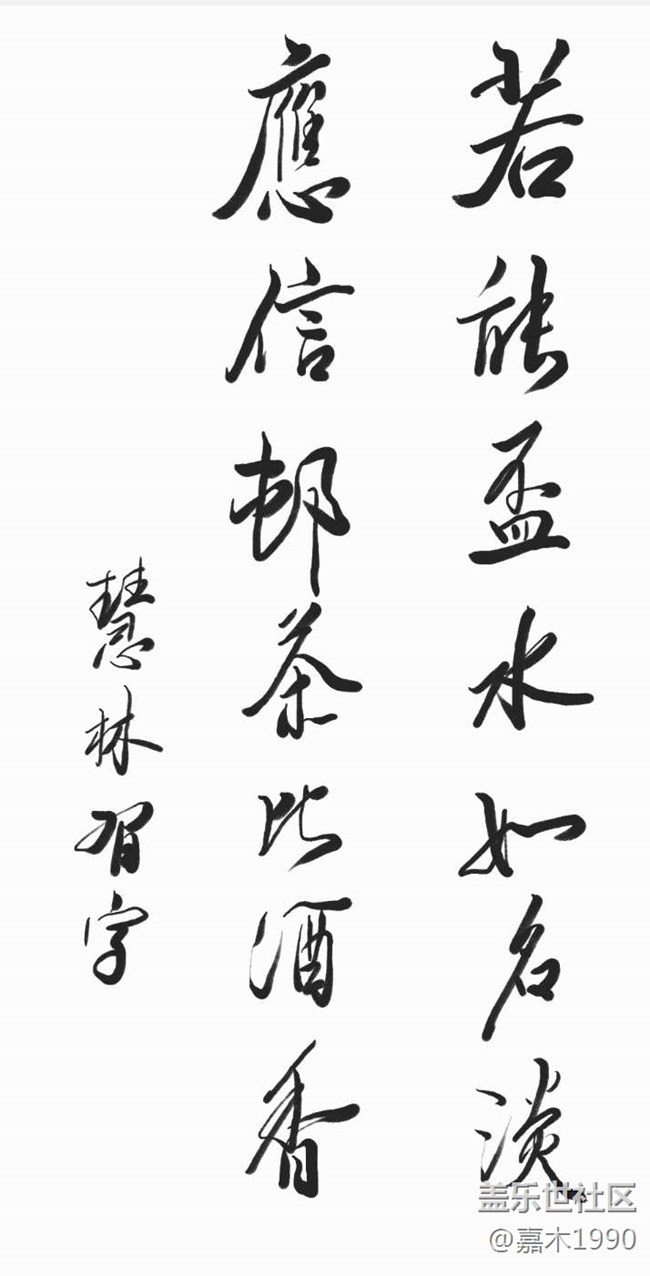 若能盃水如名淡
應信邨茶比酒香
慧林習字
盖乐世社区
@嘉木1990